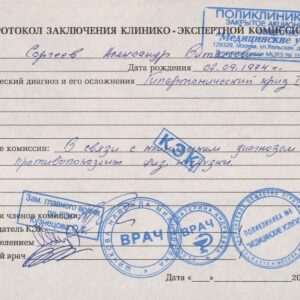 ПРОТОКОЛ ЗАКЛЮЧЕНИЯ КЛИНИКО - ЭКСПЕРТНОЙ КОМИССИ
ПОЛИКЛИНИ
ЗАКРЫТОЕ АКЦИОН
Медицинские у
129329, Москва, ул. Кольская, д
Сергеев Александр Витальеви
Дата рождения 02.09.1974 г.
еский диагноз и его осложнения Гипертонический криз
е комиссии: В связи с диагнозом
противопоказаны физ. нагрузки.
КЭК
Зам. главного врача
Кузнецова
и членов комиссии,
датель КЭК
делением
й врач
ВРАЧ
ВРАЧ
ПОЛИКЛИНИКА №6
"МЕДИЦИНСКИЕ УСЛУГИ"
Дата « » 20